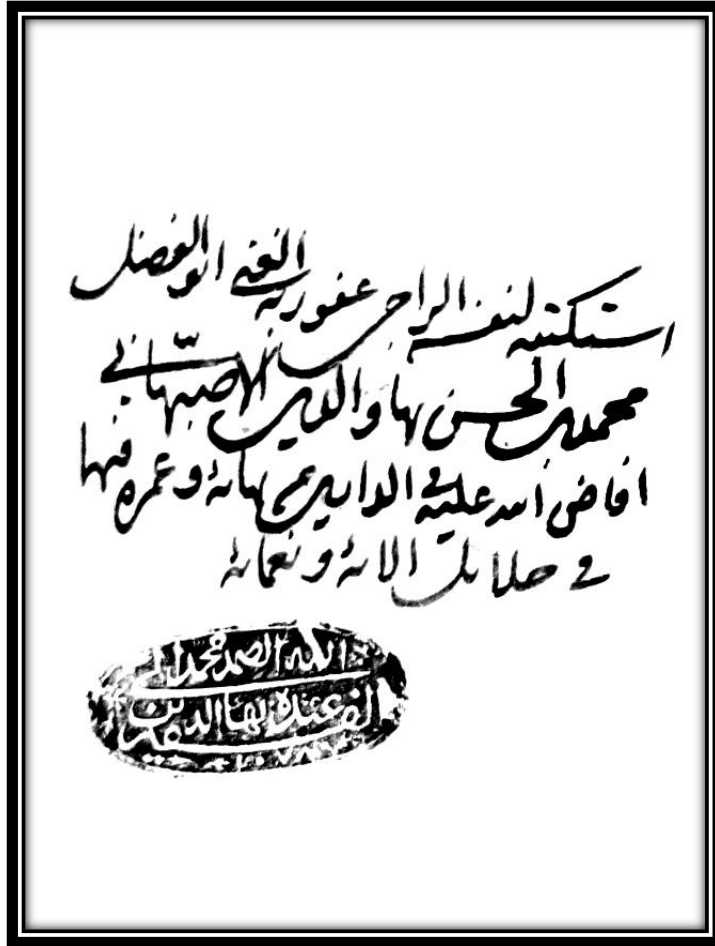 استكتبه لنفسه الراجي عفو ربه الغني ابو الفضل
محمد بن الحسن بهاء الدين الاصبهاني
افاض الله عليه في الدارين بهائه وعمره فيها
في حلائل الائه ونعمائه
الله الصمد محمد
عنده بهاء الدين